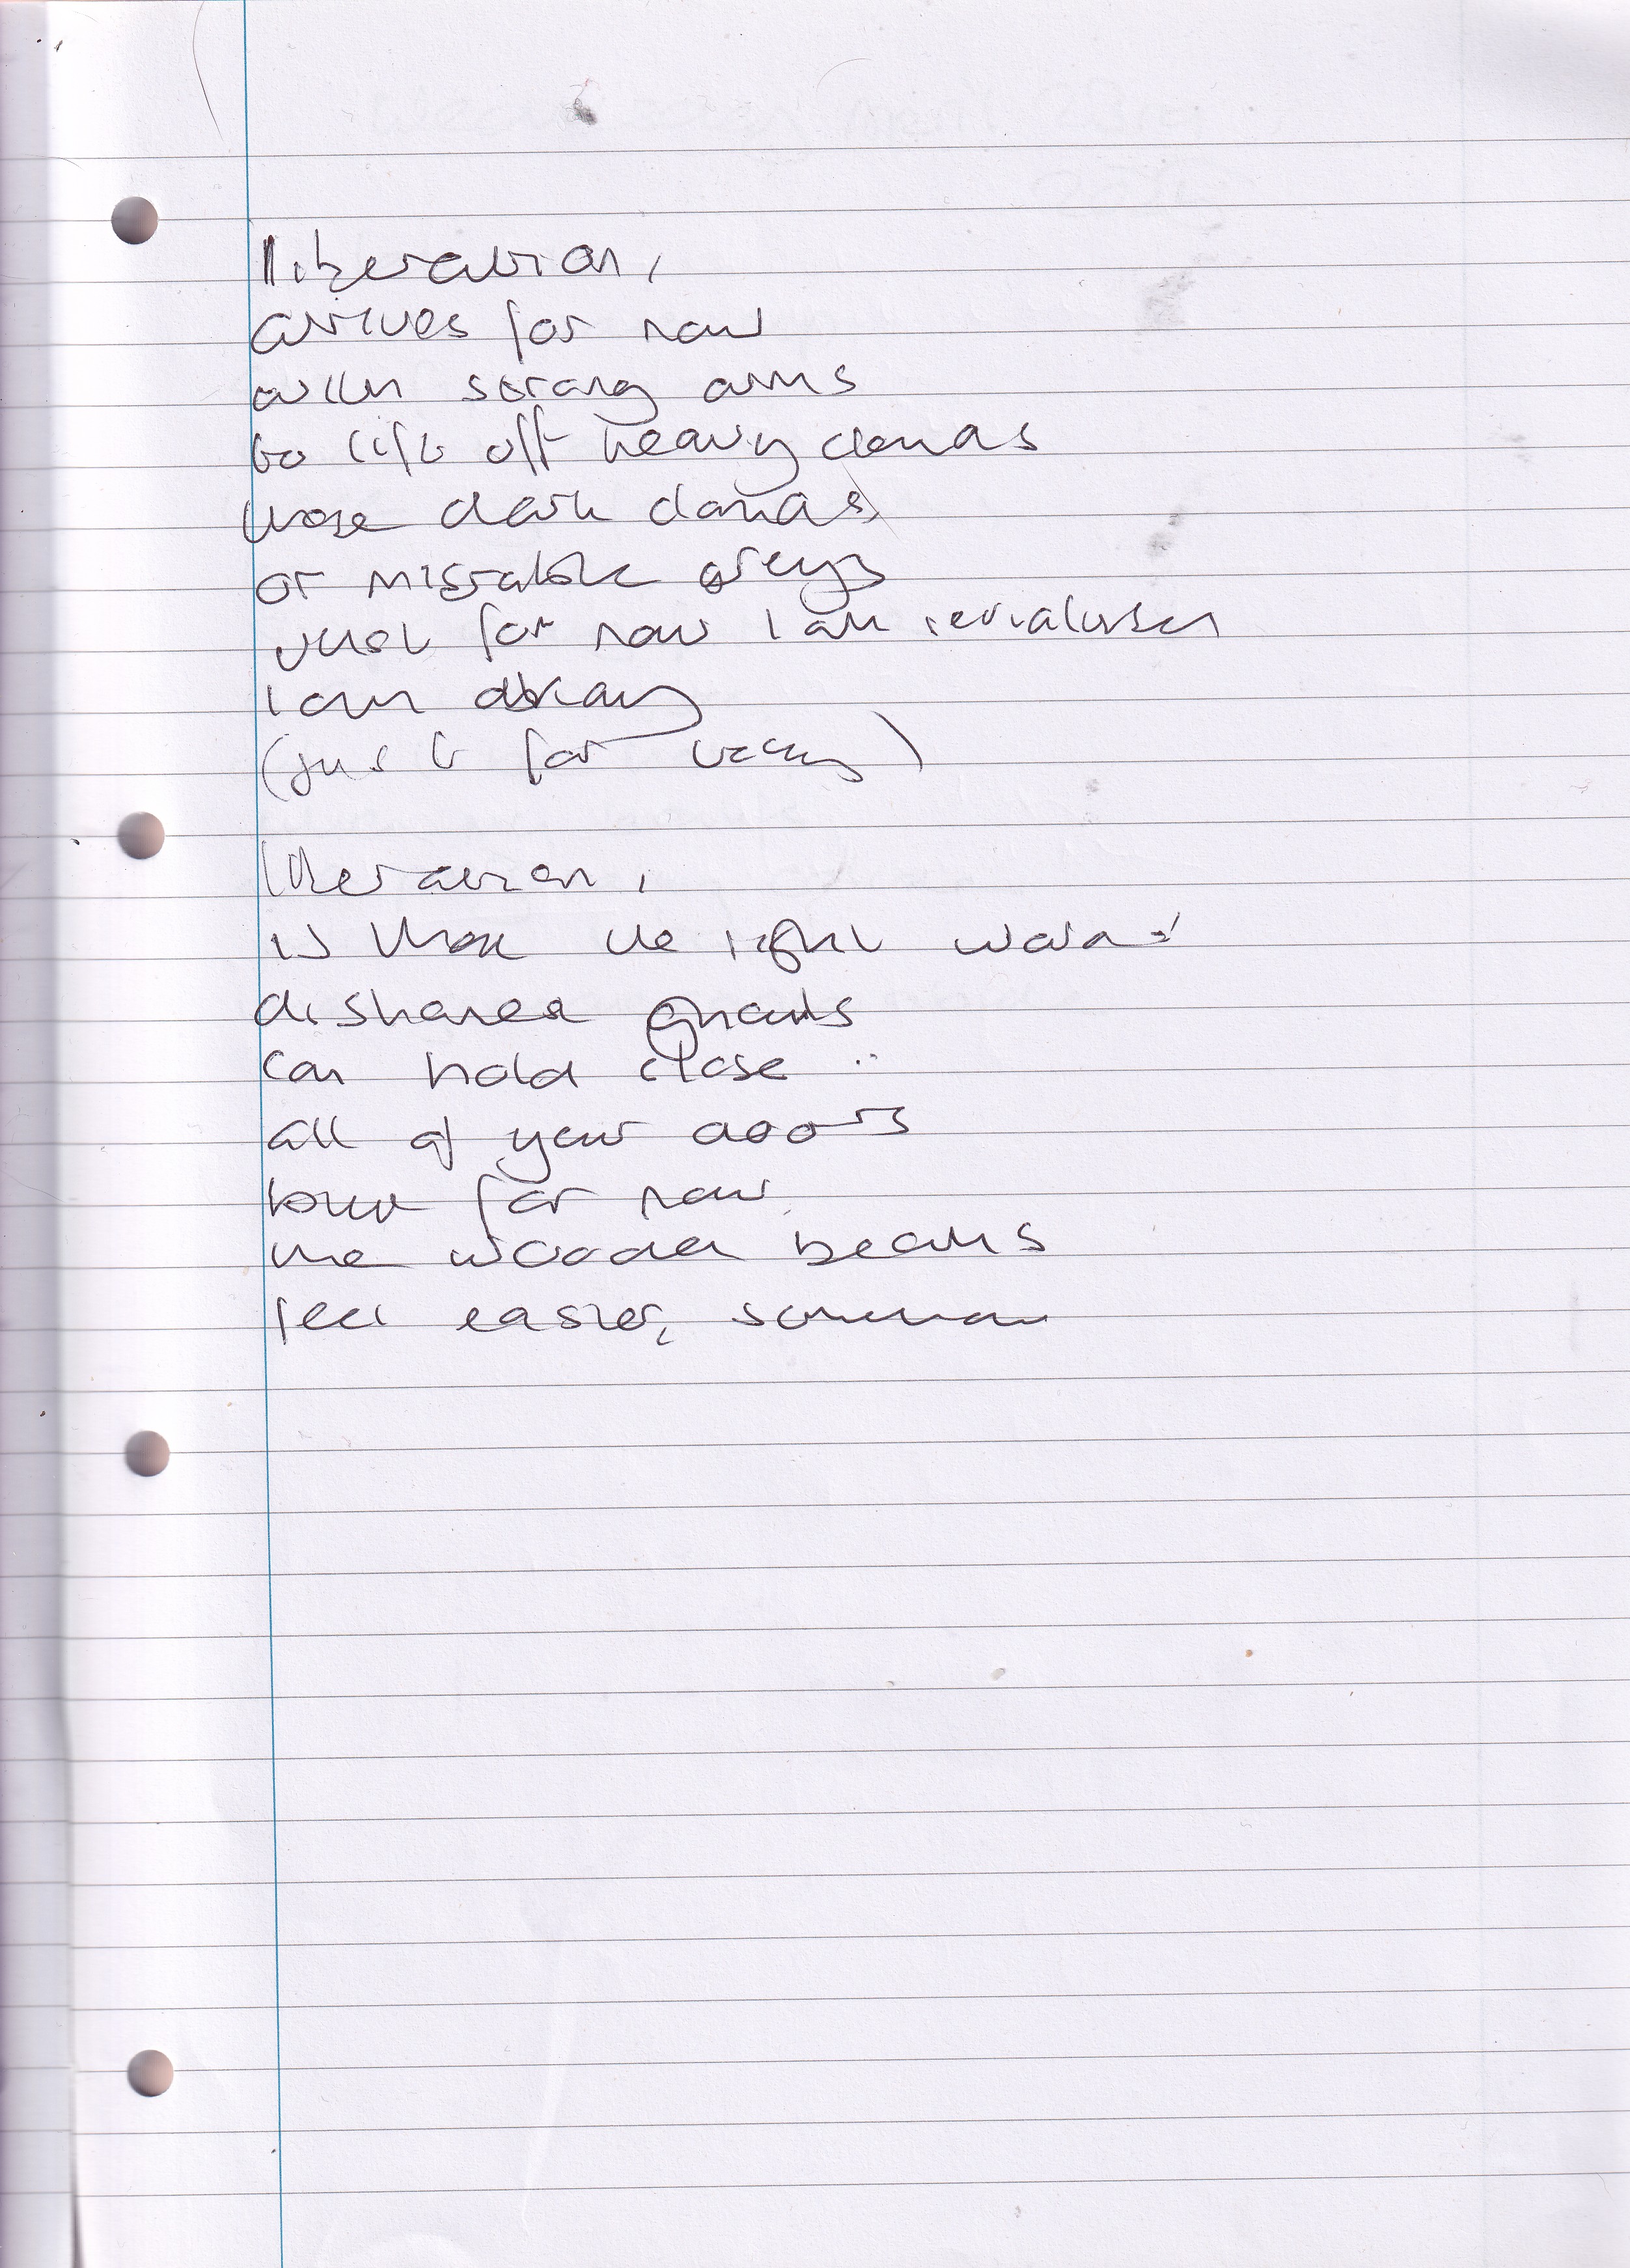 liberation,
arrives for now
with strong arms
to lift off heavy clouds
those dark clouds,
or misrable greys
just for now I am
I am okay
(just for today)
liberation,
is those the right word?
dishonest giants
can hold close
all of your doors
but for now
the wooden beams
feel easier, somehow